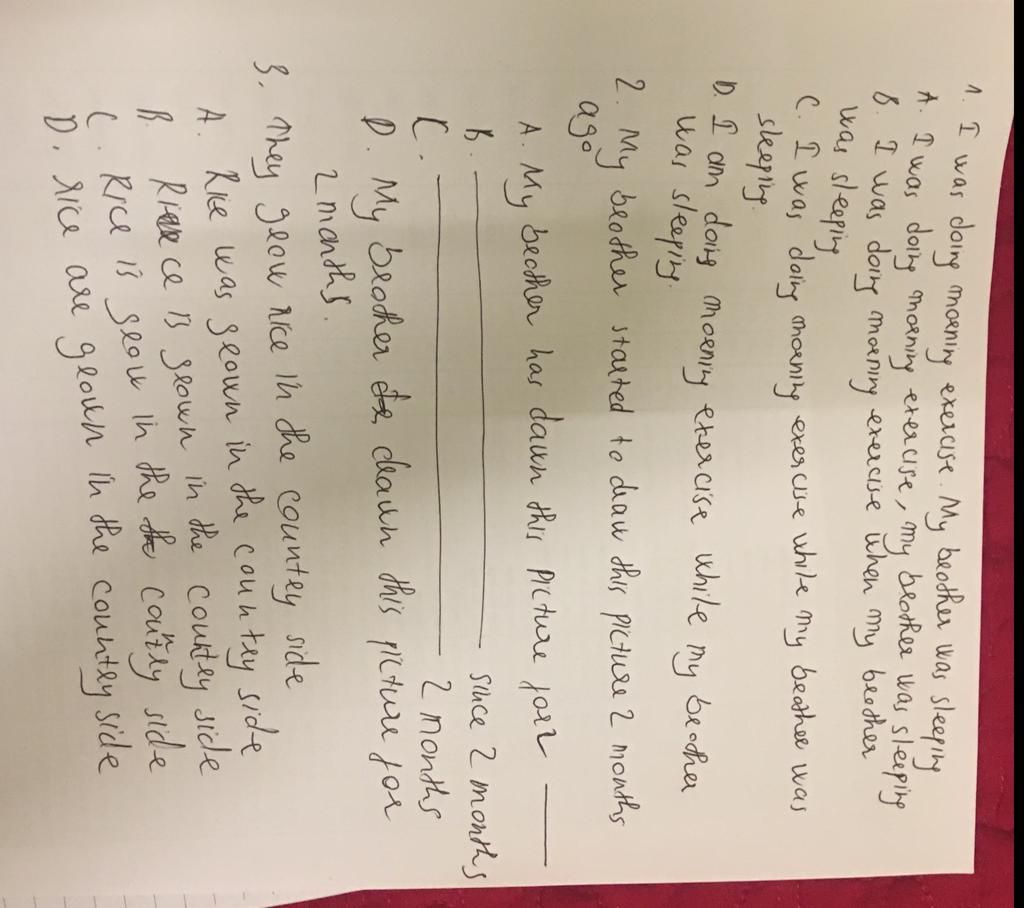 1. I was doing morning exercise. My brother was sleeping
A. I was doing morning exercise, my brother was sleeping
B. I was doing morning exercise when my brother
was sleeping
C. I was doing morning exercise while my brother was
sleeping.
D. I am doing morning exercise while my brother
was sleeping.
2. My brother started to draw this picture 2 months
ago
A. My brother has dawn this picture for 2 ___
B. ___ since 2 months
C. ___ 2 months
D. My brother drawn this picture for
2 months.
3. They grow rice in the country side
A. Rice was grown in the country side
B. Rice is grown in the country side
C. Rice is grow in the country side
D. rice are grown in the country side